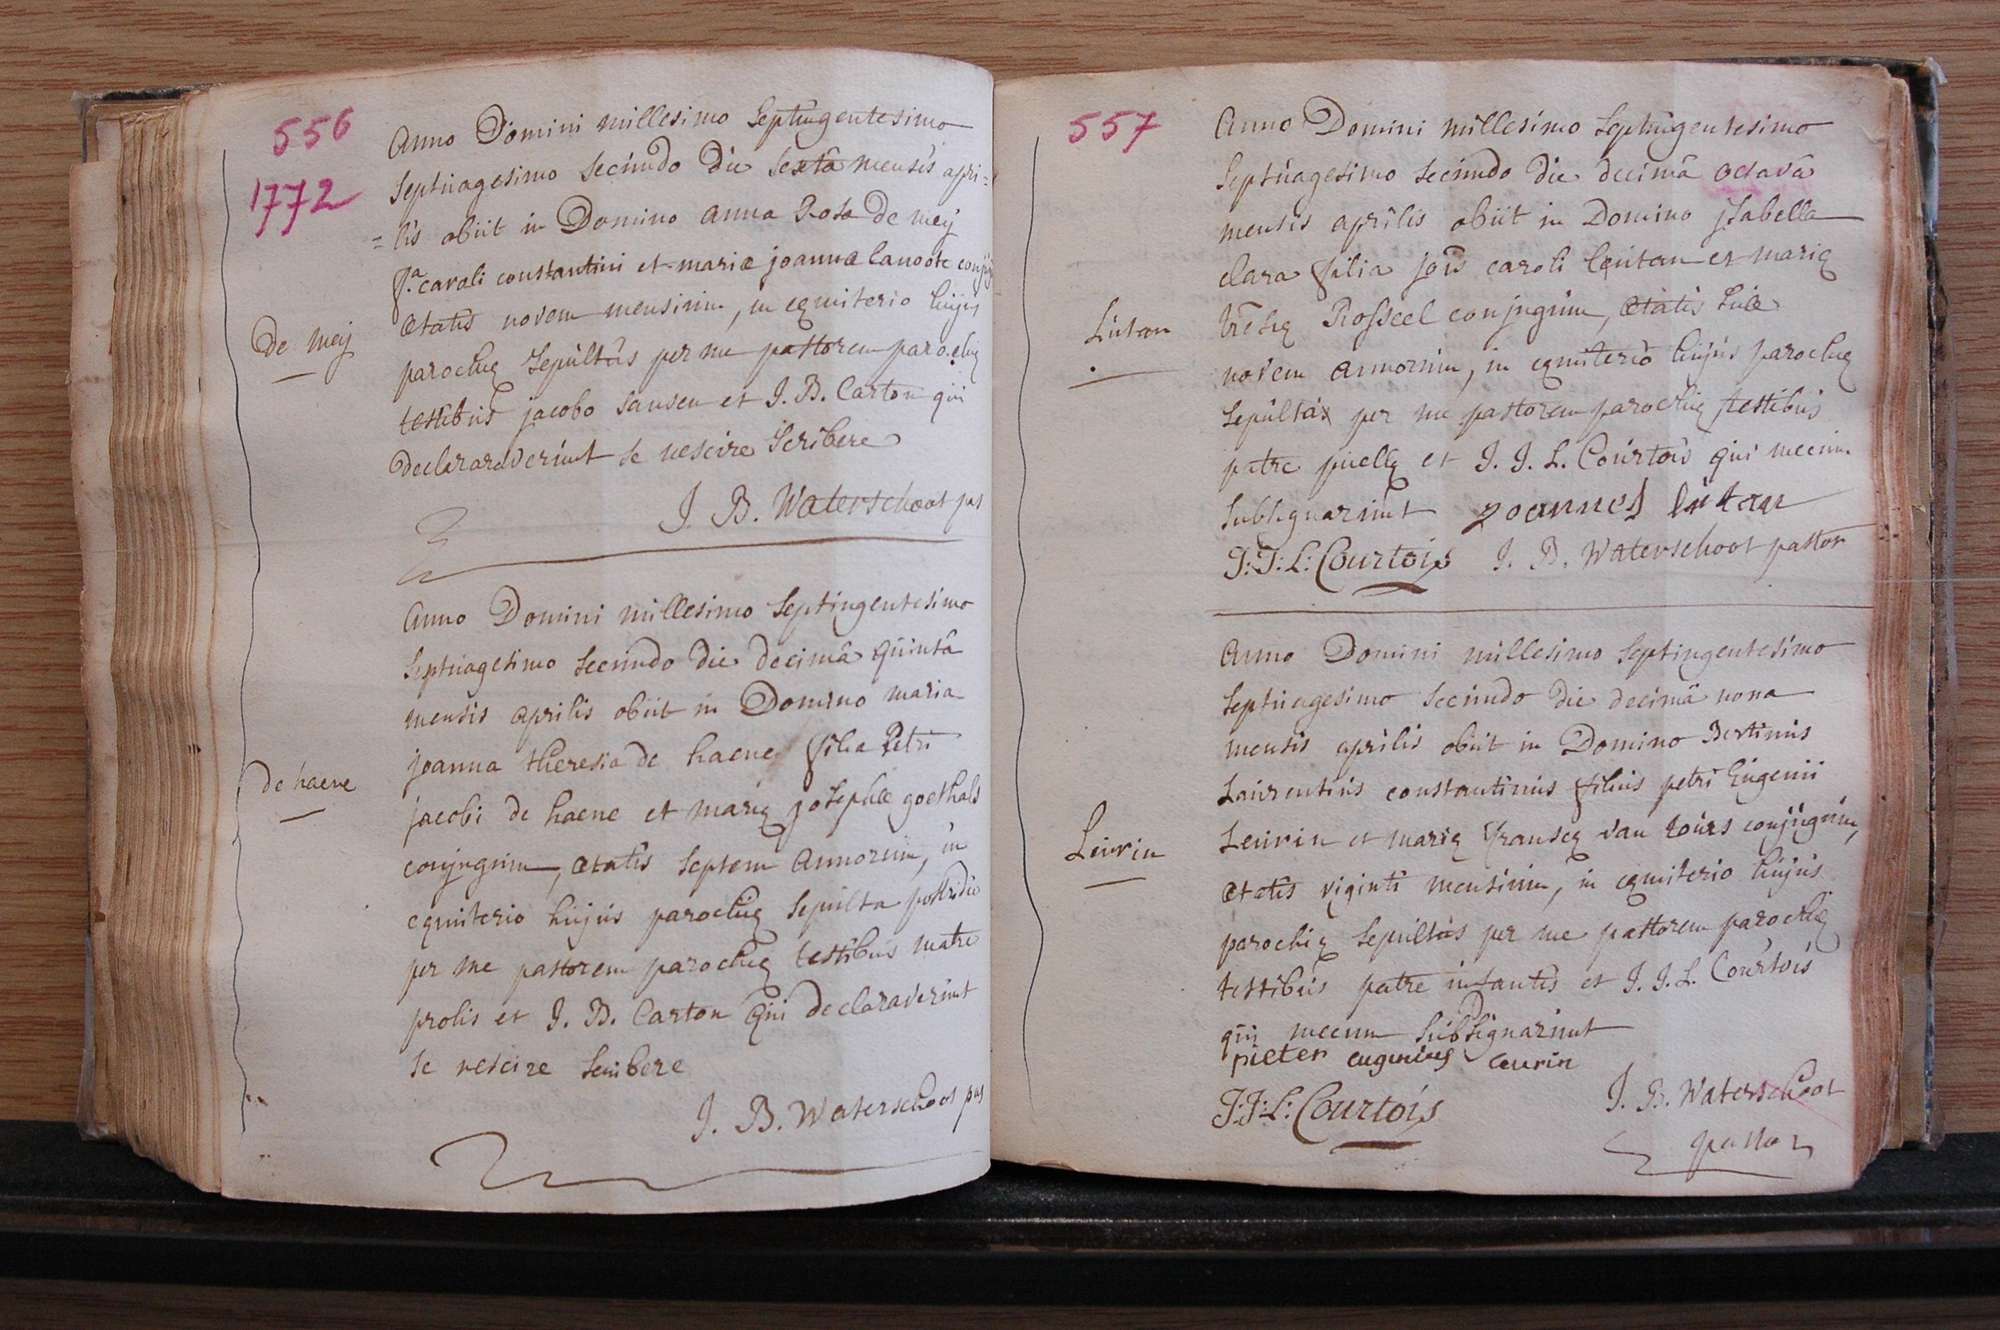 556
1772
Anno Domini millesimo Septingentesimo
Septuagesimo Secundo die Sexta mensis apri=
=lis obiit in Domino anna Rosa De meij
fa caroli constantini et mariæ joannæ lanoote conjug
De meij
Ætatis novem mensium, in cœmiterio hujus
parochiæ Sepultus per me pastorem parochiæ
testibus jacobo Sansen et J. B. Carton qui
declararaverunt se nescire Scribere
J. B. Waterschoot pas
Anno Domini millesimo Septingentesimo
Septuagesimo Secundo die decimâ quintâ
mensis aprilis obiit in Domino maria
joanna theresia de haene filia Petri
de haene
jacobi de haene et mariæ josephæ goethals
conjugum, ætatis Septem Annorum, in
cœmiterio hujus parochiæ Sepulta postridie
per me pastorem parochiæ testibus matre
prolis et J. B. Carton qui declaraverunt
se nescire Scribere
J. B. Waterschoot pas
557
Anno Domini millesimo Septingentesimo
Septuagesimo Secundo die decimâ octavâ
mensis aprilis obiit in Domino jsabella
clara filia jois caroli Lintan et mariæ
Lintan
Rosseel conjugum, ætatis Suæ
novem annorum, in cœmiterio hujus parochiæ
Sepulta per me pastorem parochiæ testibus
patre puellæ et J. J. L. Courtois qui mecum
Subsignarunt joannes lintan
J: J: L: Courtois J. B. Waterschoot pastor
Anno Domini millesimo Septingentesimo
Septuagesimo Secundo die decimâ nona
mensis aprilis obiit in Domino Bertinus
Laurentius constantinus filius petri Eugenii
Leurin
Leurin et mariæ franscæ van tours conjugum,
ætatis viginti mensium, in cœmiterio hujus
parochiæ Sepultus per me pastorem parochiæ
testibus patre infantis et J. J. L. Courtois
qui mecum Subsignarunt
pieter eugenius Leurin
J: J: L: Courtois
J. B. Waterschoot
pastor